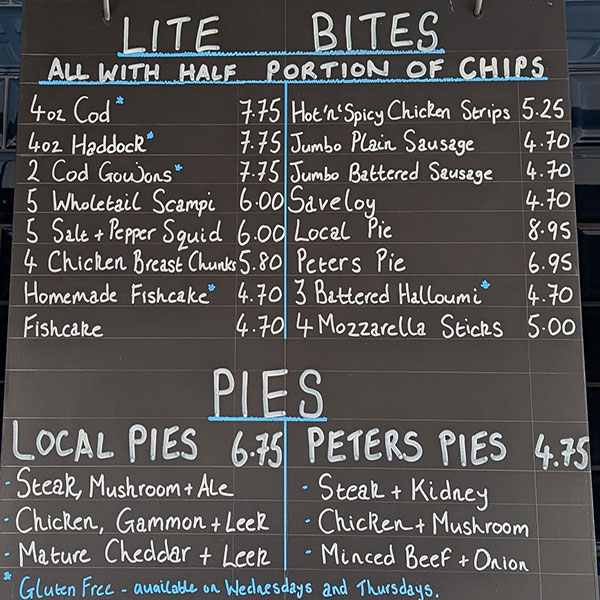 LITE BITES
ALL WITH HALF PORTION OF CHIPS
4oz Cod* 7.75
4oz Haddock* 7.75
2 Cod Goujons* 7.75
5 Wholetail Scampi 6.00
5 Salt + Pepper Squid 6.00
4 Chicken Breast Chunks 5.80
Homemade Fishcake* 4.70
Fishcake 4.70
Hot'n'Spicy Chicken Strips 5.25
Jumbo Plain Sausage 4.70
Jumbo Battered Sausage 4.70
Saveloy 4.70
Local Pie 8.95
Peters Pie 6.95
3 Battered Halloumi* 4.70
4 Mozzarella Sticks 5.00
PIES
LOCAL PIES 6.75
· Steak, Mushroom + Ale
· Chicken, Gammon + Leek
· Mature Cheddar + Leek
PETERS PIES 4.75
· Steak + Kidney
· Chicken + Mushroom
· Minced Beef + Onion
* Gluten Free - available on Wednesdays and Thursdays.